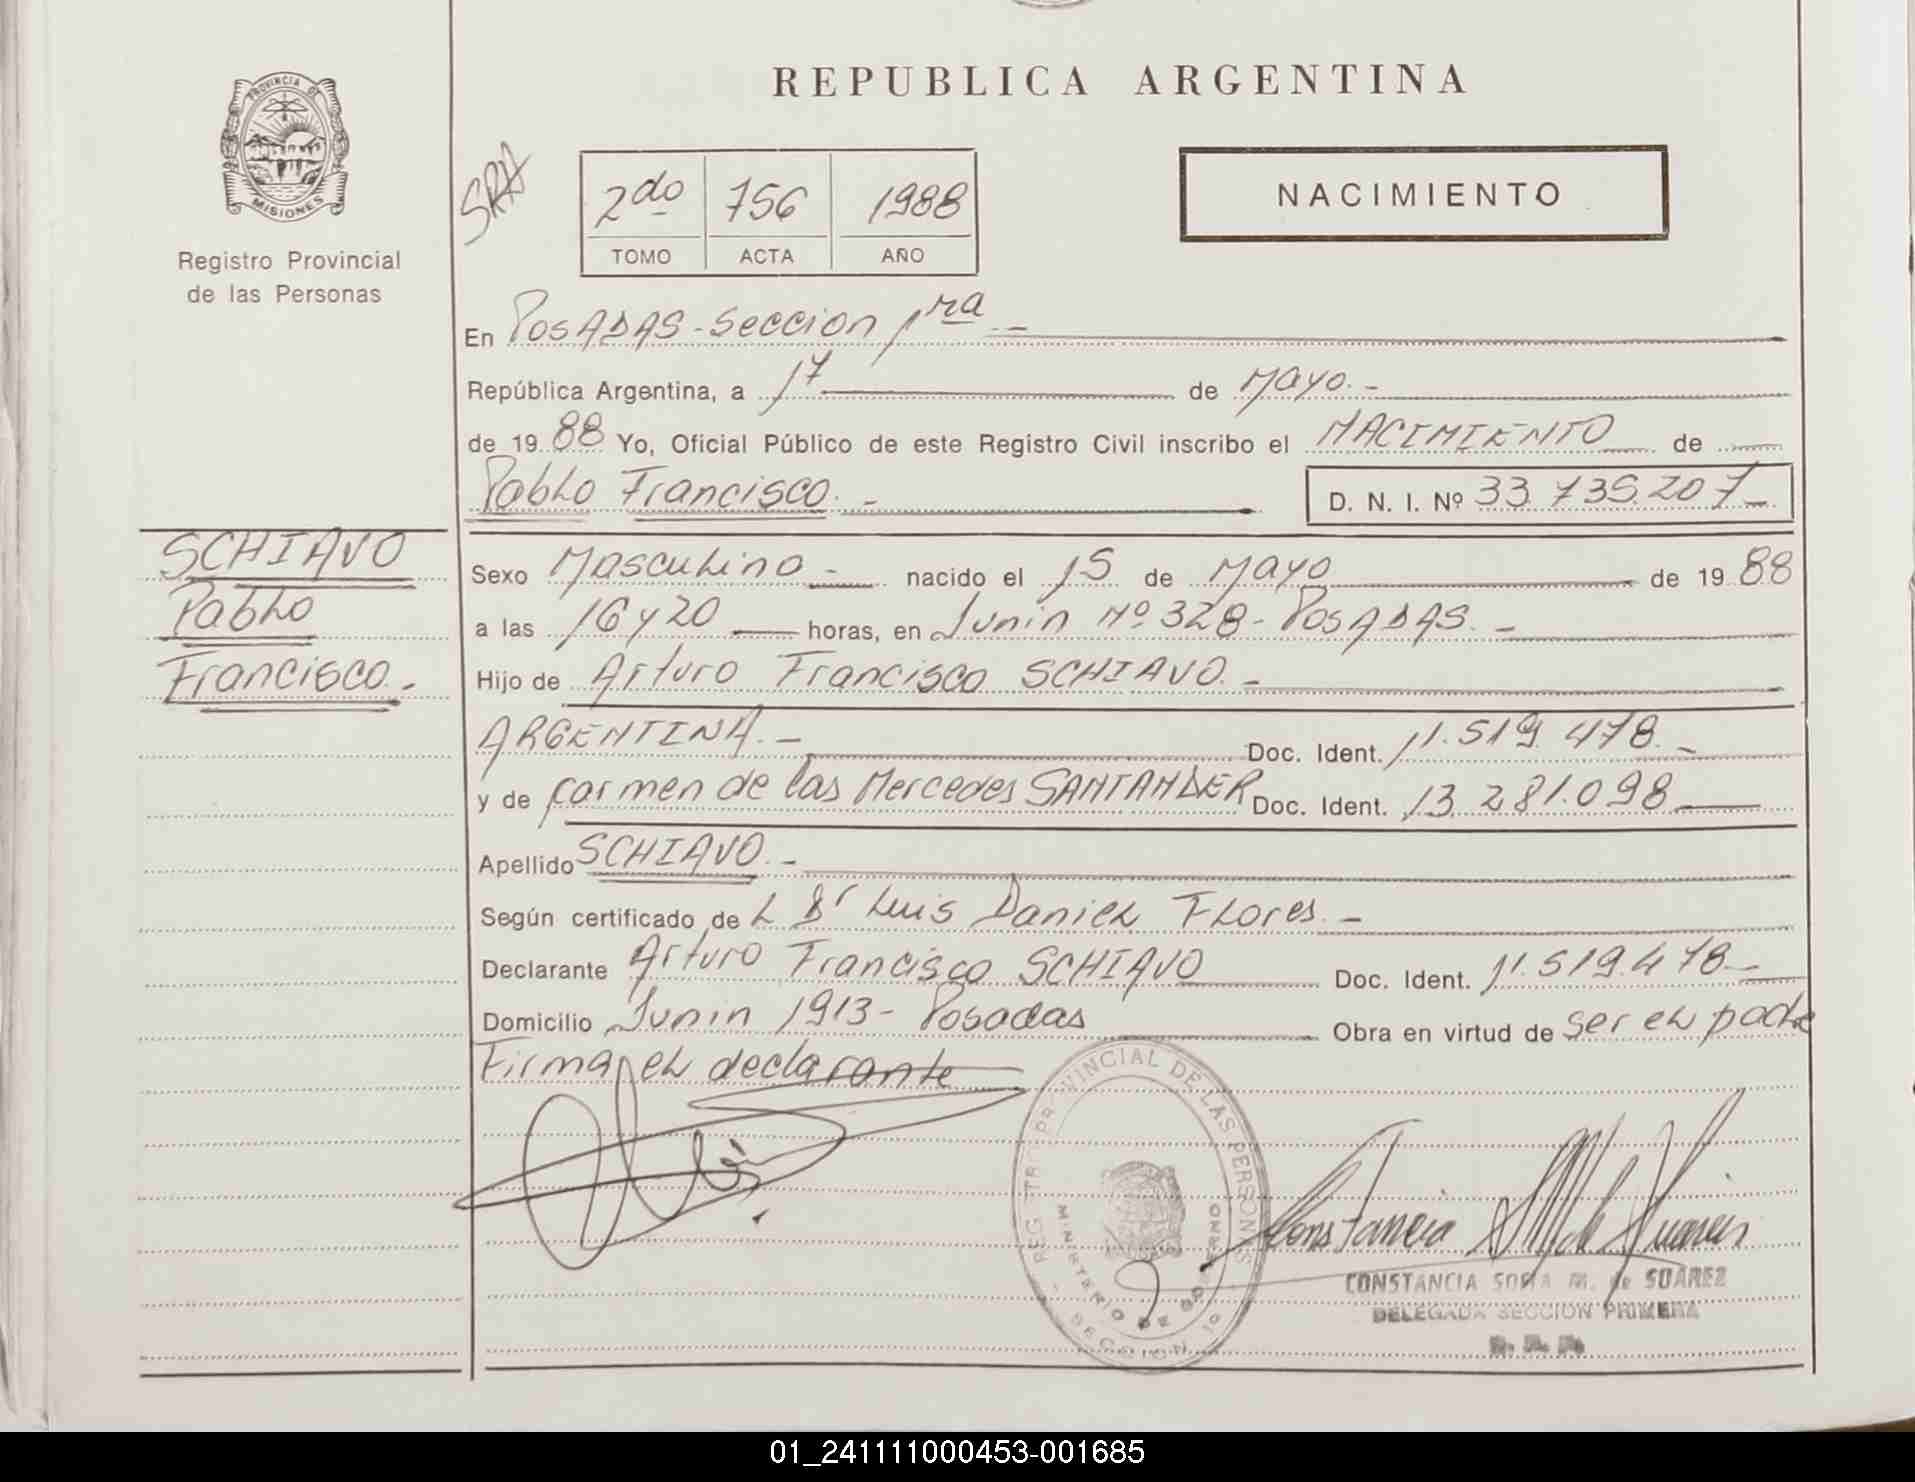 REPUBLICA ARGENTINA
PROVINCIA DE
MISIONES
Registro Provincial
de las Personas
SRA
2do 756 1988
TOMO ACTA AÑO
NACIMIENTO
En POSADAS - Seccion 1ra -
República Argentina, a 17 de Mayo. -
de 19 88 Yo, Oficial Público de este Registro Civil inscribo el NACIMIENTO de
Pablo Francisco. - D. N. I. Nº 33.735.207-
SCHIAVO
Pablo
Francisco. -
Sexo Masculino - nacido el 15 de Mayo de 19 88
a las 16 y 20 horas, en Junin Nº 328 - POSADAS. -
Hijo de Arturo Francisco SCHIAVO. -
ARGENTINA. - Doc. Ident. 11.519.478. -
y de Carmen de las Mercedes SANTANDER Doc. Ident. 13.281.098
Apellido SCHIAVO. -
Según certificado de L Dr Luis Daniel Flores. -
Declarante Arturo Francisco SCHIAVO Doc. Ident. 11.519.478-
Domicilio Junin 1913 - Posadas Obra en virtud de ser el padre
Firma el declarante
REGISTRO PROVINCIAL DE LAS PERSONAS
MINISTERIO DE GOBIERNO
SECCION 1º
Constancia S M de Suarez
CONSTANCIA SOFIA M. de SUAREZ
DELEGADA SECCION PRIMERA
01_241111000453-001685